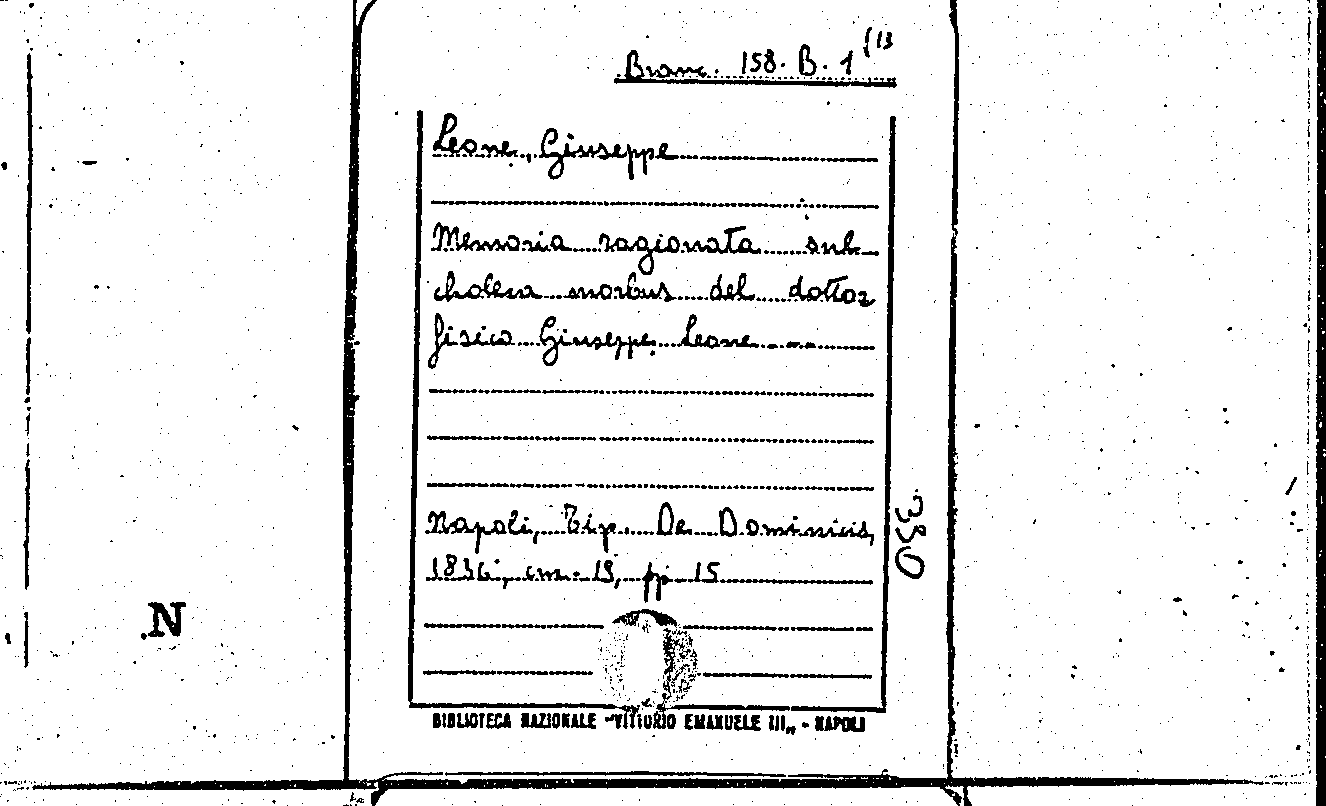 Branc. 158. B. 1 (13
Leone, Giuseppe
Memoria ragionata sul
cholera morbus del dottor
fisico Giuseppe Leone
Napoli, Tip. De Dominicis,
1836, cm. 19, pp. 15
330
N
BIBLIOTECA NAZIONALE "VITTORIO EMANUELE III„ - NAPOLI